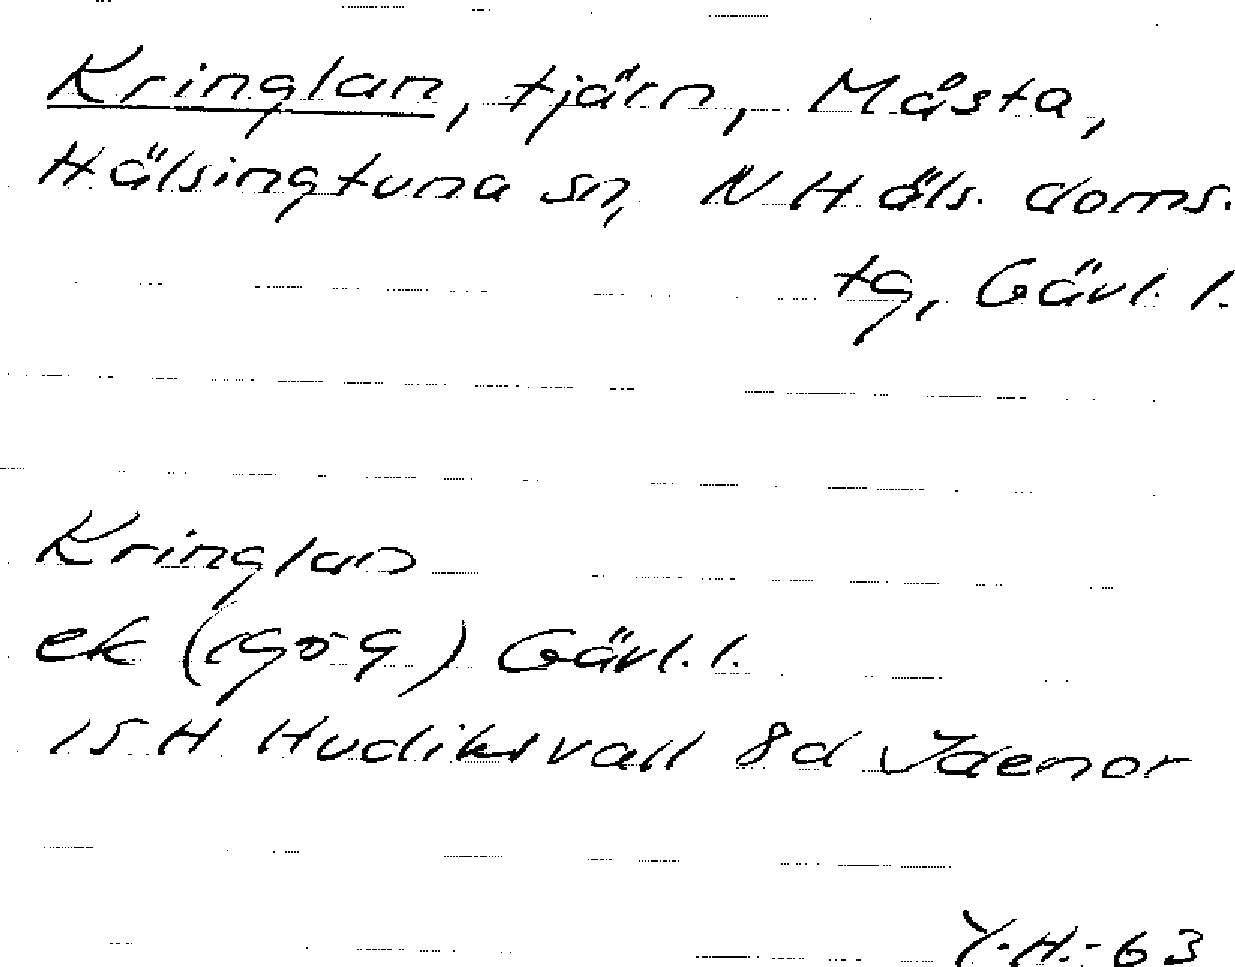 Kringlan, tjärn, Måsta,
Hälsingtuna sn, N Häls. doms.
tg, Gävl. l.
Kringlan
ek (1959) Gävl. l.
15 H Hudiksvall 8d Idenor
Y.H.-63